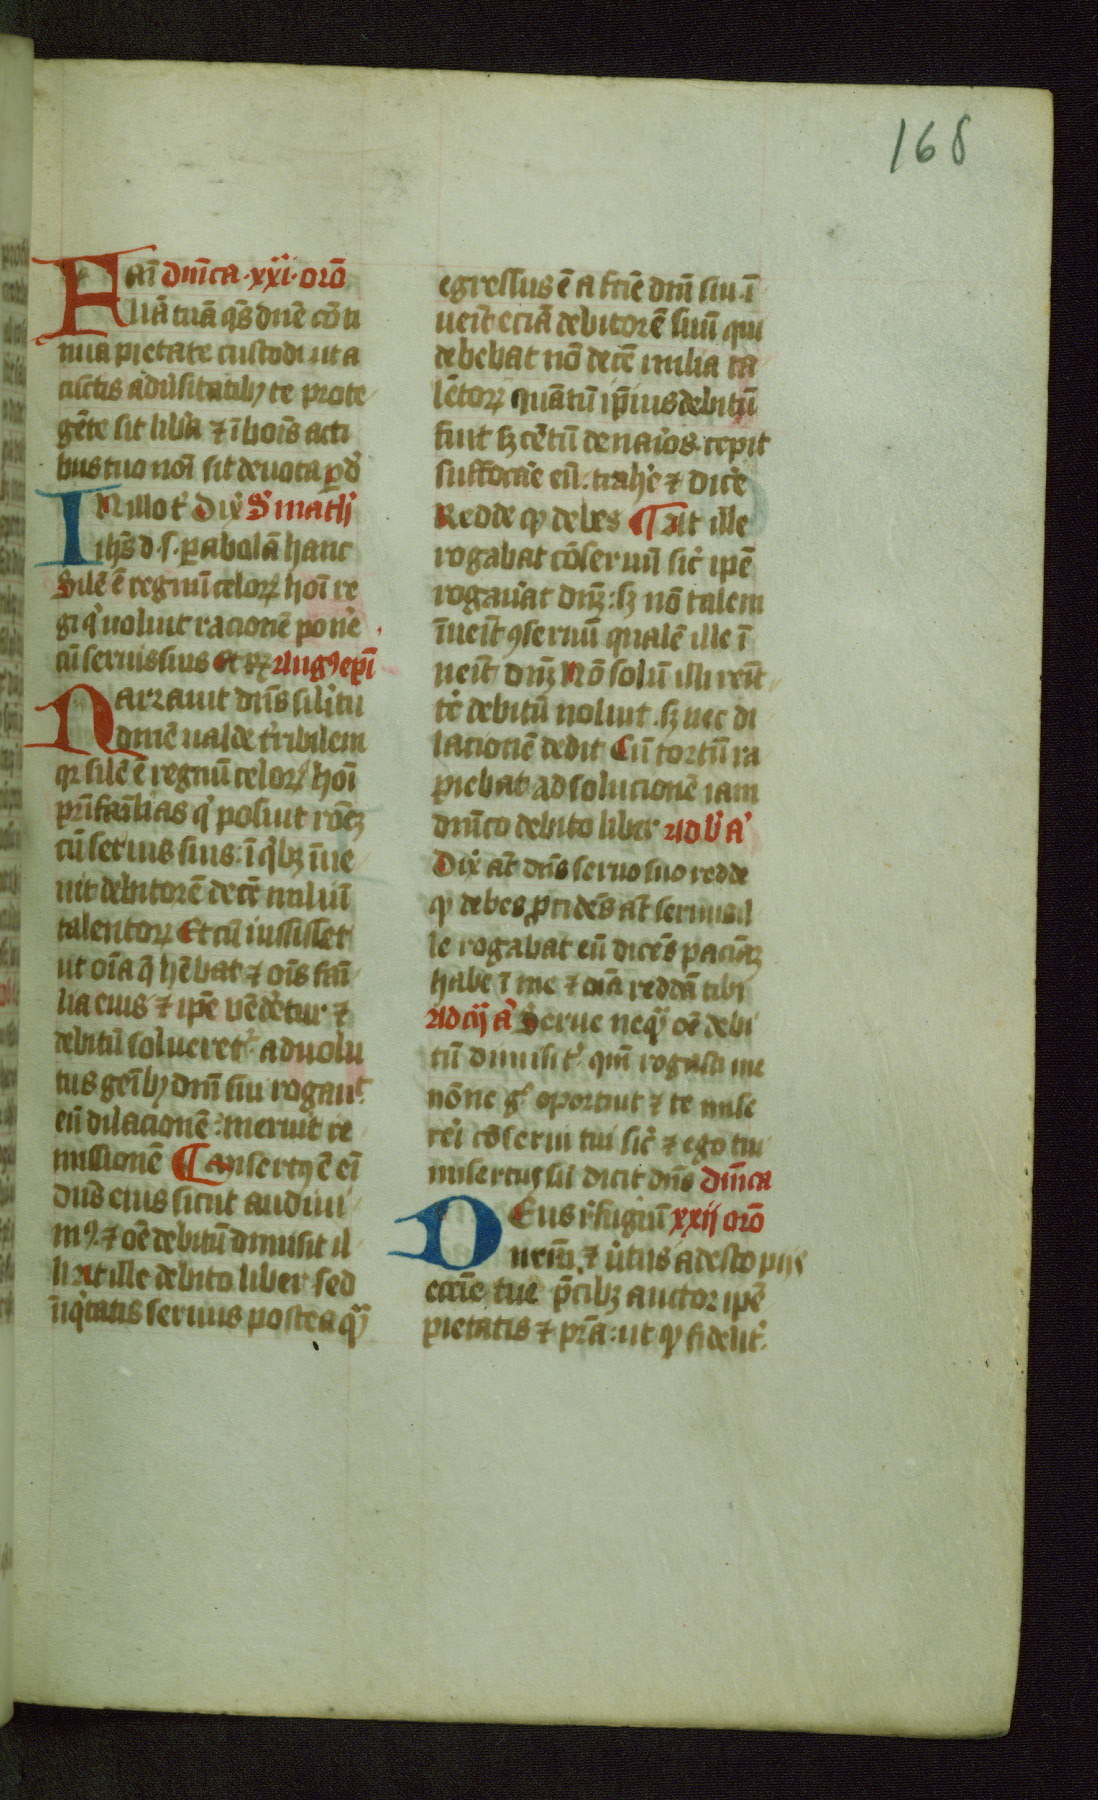 168
Fam̄ dm̄ca xxi orō
liā tuā q̄s dn̄e cōti
nua pietate custodi ut a
cūctis adūsitatibꝫ te prote
gēte sit lib̄a ⁊ ī bonis acti
bus tuo noī sit deuota p̄ d̄
IN illo t̄ Dix̄ S̄ math̄
ih̄s d. s. ꝑabolā hanc
Sile ē regnū celoꝝ hoī re
gi q' uoluit racionē pon̄e
cū seruis suis et rꝫ Augꝰ ep̄i
Narrauit dn̄s silitu
dinē ualde t̄ribilem
qꝛ sile ē regnū celoꝝ hoī
pr̄ifamīlias q' posuit rōeꝫ
cū seruis suis. ī qꝫ īue
nit debitorē decē miliū
talentoꝝ Et cū iussisset
ut oīa q̄ hēbat ⁊ oīs fam̄
lia eius ⁊ ip̄e uēdētur ⁊
debitū solueret. aduolu
tus geībꝫ dm̄ sui rogauit
eū dilacionē. meruit re
missionē ¶ Misertꝰ ē eī
dn̄s eius sicut audiui
mꝰ. ⁊ oē debitū dimisit il
li At ille debito liber sed
īiq'tatis seruus postea qꝫ
egressus ē a facīe dm̄i sui. ī
ueīt eciā debitorē suū qui
debebat nō decē milia ta
lētoꝝ quātū ip̄ius debitū
fuit sꝫ cētū denarios. cepit
suffocāe eū. trah̄e ⁊ dic̄e
Redde qꝫ debes ¶ At ille
rogabat cōseruū sic̄ ip̄e
rogau̓at dm̄. sꝫ nō talem
īueīt ꝯseruū qualē ille ī
ueīt dm̄ Nō solū illi remit
t̄e debitū noluit. sꝫ nec di
lacionē dedit Cū tortū ra
piebat ad solucionē iam
dm̄co debito liber Ad b̄ a'
Dix̄ at̄ dn̄s seruo suo redde
qꝫ debes ꝓcidēs at̄ seruus il
le rogabat eū dicēs paciāꝫ
habe ī me ⁊ oīa reddā tibi
Ad m̄ a' Serue neqꝫ oē debi
tū dimisi t' qm̄ rogasti me
nōne g̊ oportuit ⁊ te mise
reri cōserui tui sic̄ ⁊ ego tui
misertus sū dicit dn̄s Dm̄ca
DEus r̄fugiū xxij orō
nrm̄ ⁊ ūtus adesto pijs
ecc̄ie tue p̄cibꝫ auctor ip̄e
pietatis ⁊ pr̄a. ut qꝫ fidelit̄